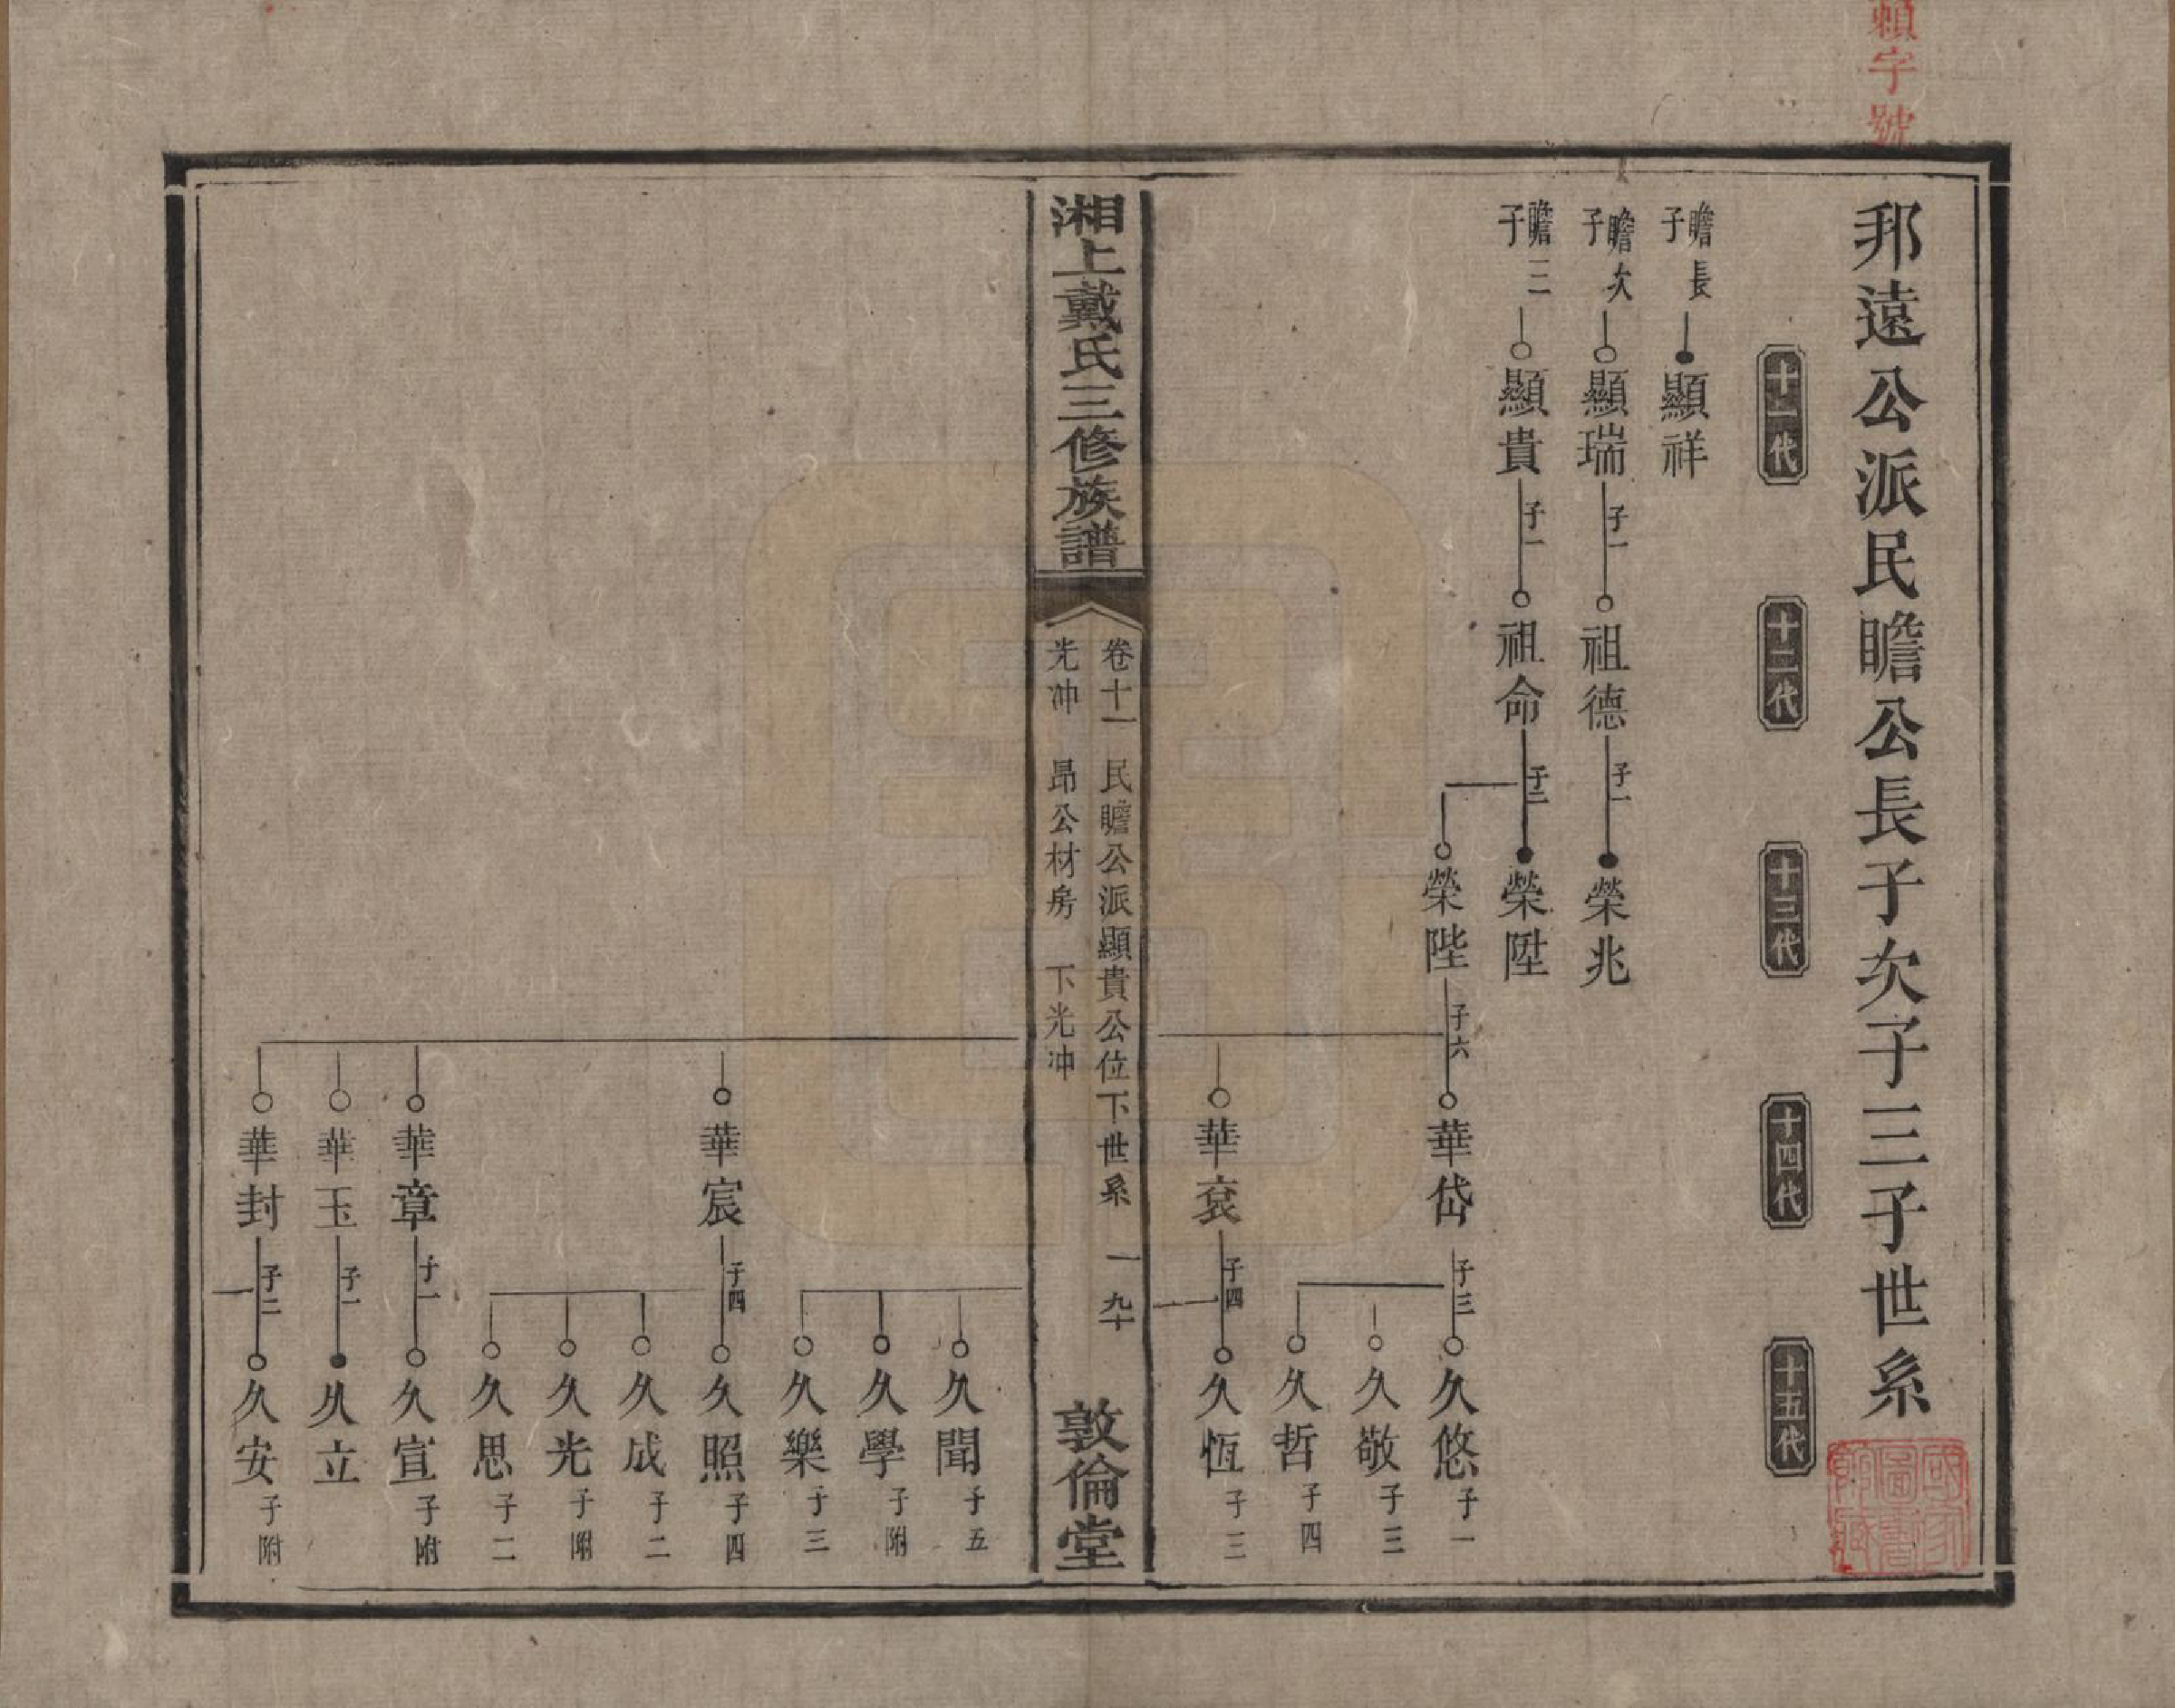 賴字號
邦遠公派民瞻公長子次子三子世系
十一代
十二代
十三代
十四代
十五代
瞻長子
顯祥
瞻次子
顯瑞
子一
祖德
子一
榮兆
瞻三子
顯貴
子一
祖命
子二
榮陞
榮陛
子六
華岱
子三
久悠
子一
久敬
子三
久哲
子四
華袞
子四
久恆
子三
湘上戴氏三修族譜
卷十一 民瞻公派顯貴公位下世系 一
光冲 昂公材房 下光冲
九十
敦倫堂
久聞
子五
久學
子附
久樂
子三
華宸
子四
久照
子四
久成
子二
久光
子附
久思
子二
華章
子一
久宣
子附
華玉
子一
久立
華封
子二
久安
子附